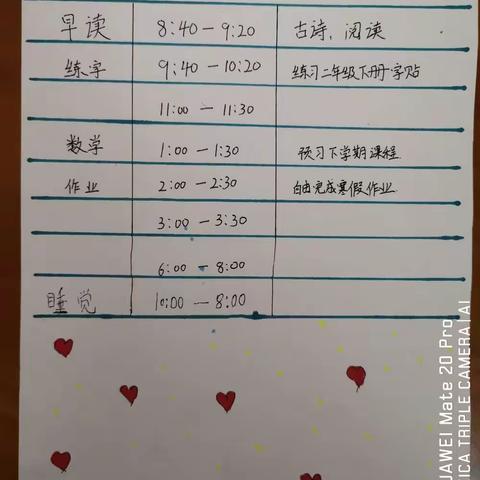 早读 8:40 — 9:20 古诗、阅读
练字 9:40 — 10:20 练习二年级下册字贴
11:00 — 11:30
数学 1:00 — 1:30 预习下学期课程
作业 2:00 — 2:30 自由完成寒假作业
3:00 — 3:30
6:00 — 8:00
睡觉 10:00 — 8:00
HUAWEI Mate 20 Pro
LEICA TRIPLE CAMERA | AI